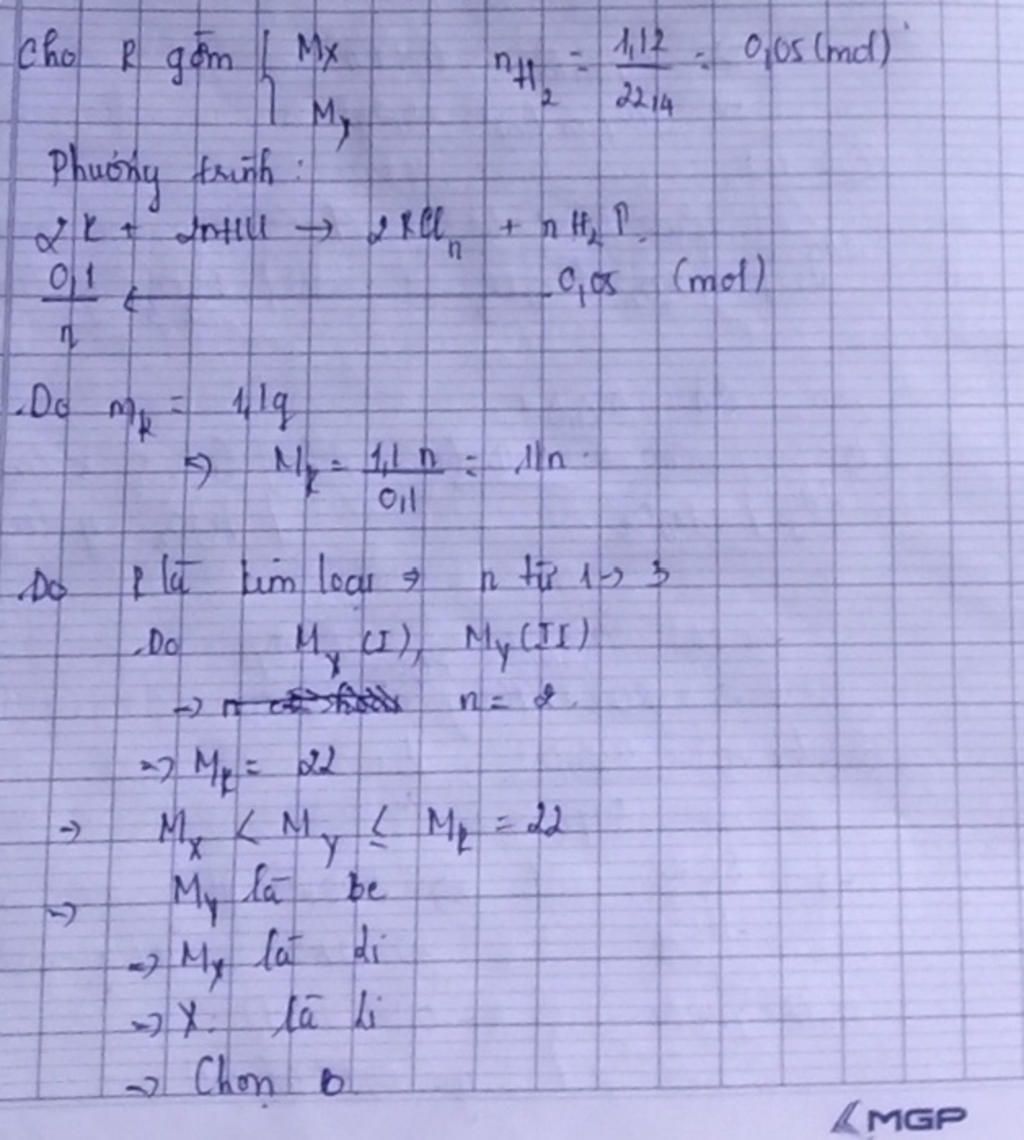 Cho R gồm { Mx nH2 = 1,12 / 22,4 = 0,05 (mol)
My
Phương trình :
2R + 2nHCl → 2RCln + nH2 ↑.
0,1 / n ← 0,05 (mol)
Do mR = 1,1g
=> MR = 1,1 n / 0,1 = 11n.
Do R là kim loại => n từ 1 -> 3
Do Mx (I), My (II)
-> n = 2.
=> MR = 22
=> Mx < My ≤ MR = 22
=> My là be
=> Mx là Li
=> X. là Li
=> Chọn D
MGP